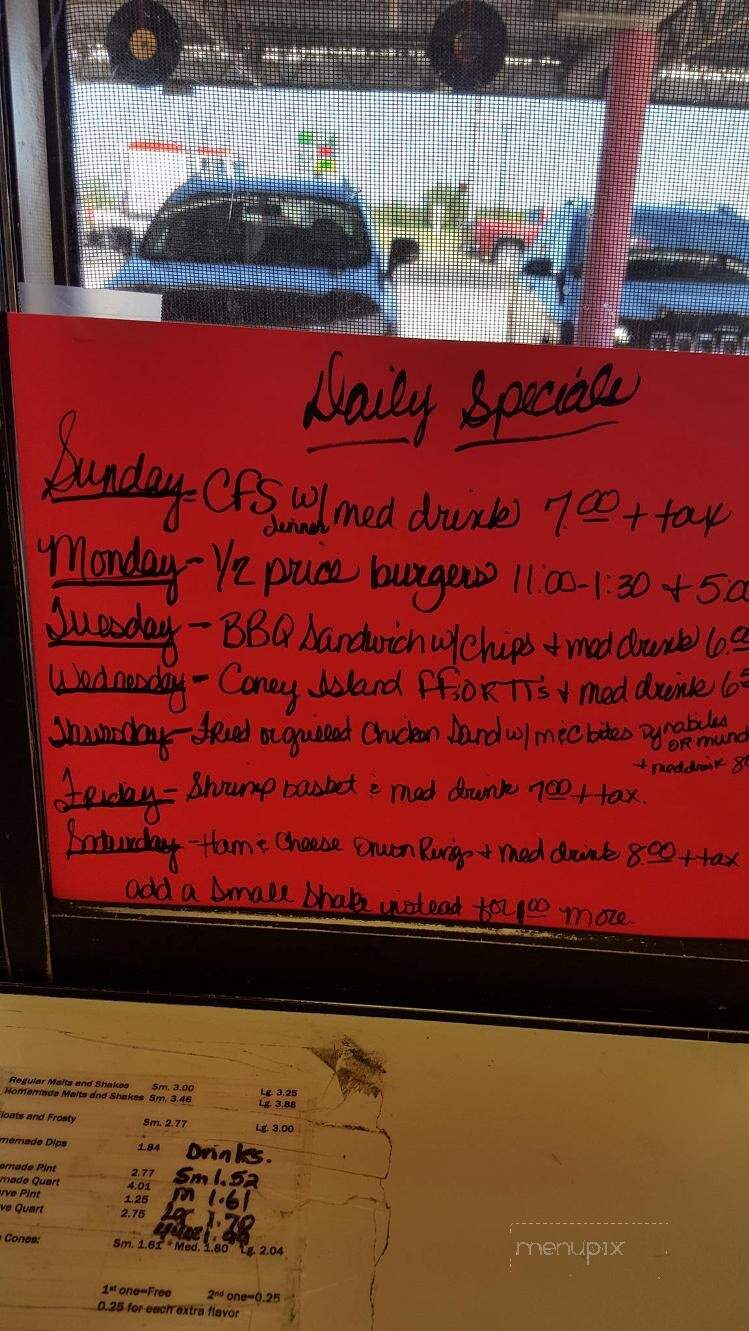 Daily Specials
Sunday = CFS w/ med drink 7.00 + tax
dinner
Monday - 1/2 price burgers 11:00-1:30 + 5:00
Tuesday - BBQ Sandwich w/ chips + med drink 6.00
Wednesday - Coney Island FF's OR TT's + med drink 6
Thursday - Fried or grilled Chicken Sand w/ m&C bites Dynabites
OR mund
+ med drink 8
Friday = Shrimp basket & med drink 7.00 + tax.
Saturday - Ham & Cheese Onion Rings + med drink 8.00 + tax
add a Small Shake instead for 1.00 more.
Regular Malts and Shakes Sm. 3.00 Lg. 3.25
Homemade Malts and Shakes Sm. 3.46 Lg. 3.88
loats and Frosty Sm. 2.77 Lg. 3.00
memade Dips 1.84
Drinks.
emade Pint 2.77 Sm 1.52
made Quart 4.01
rve Pint 1.25 m 1.61
ve Quart 2.75 Lg 1.78
Cones: Sm. 1.61 Med. 1.80 Lg. 2.04
1st one=Free 2nd one=0.25
0.25 for each extra flavor
menupix